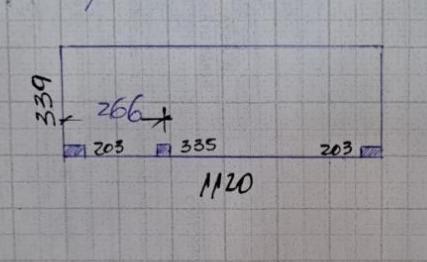 339
266
203 335 203
1120